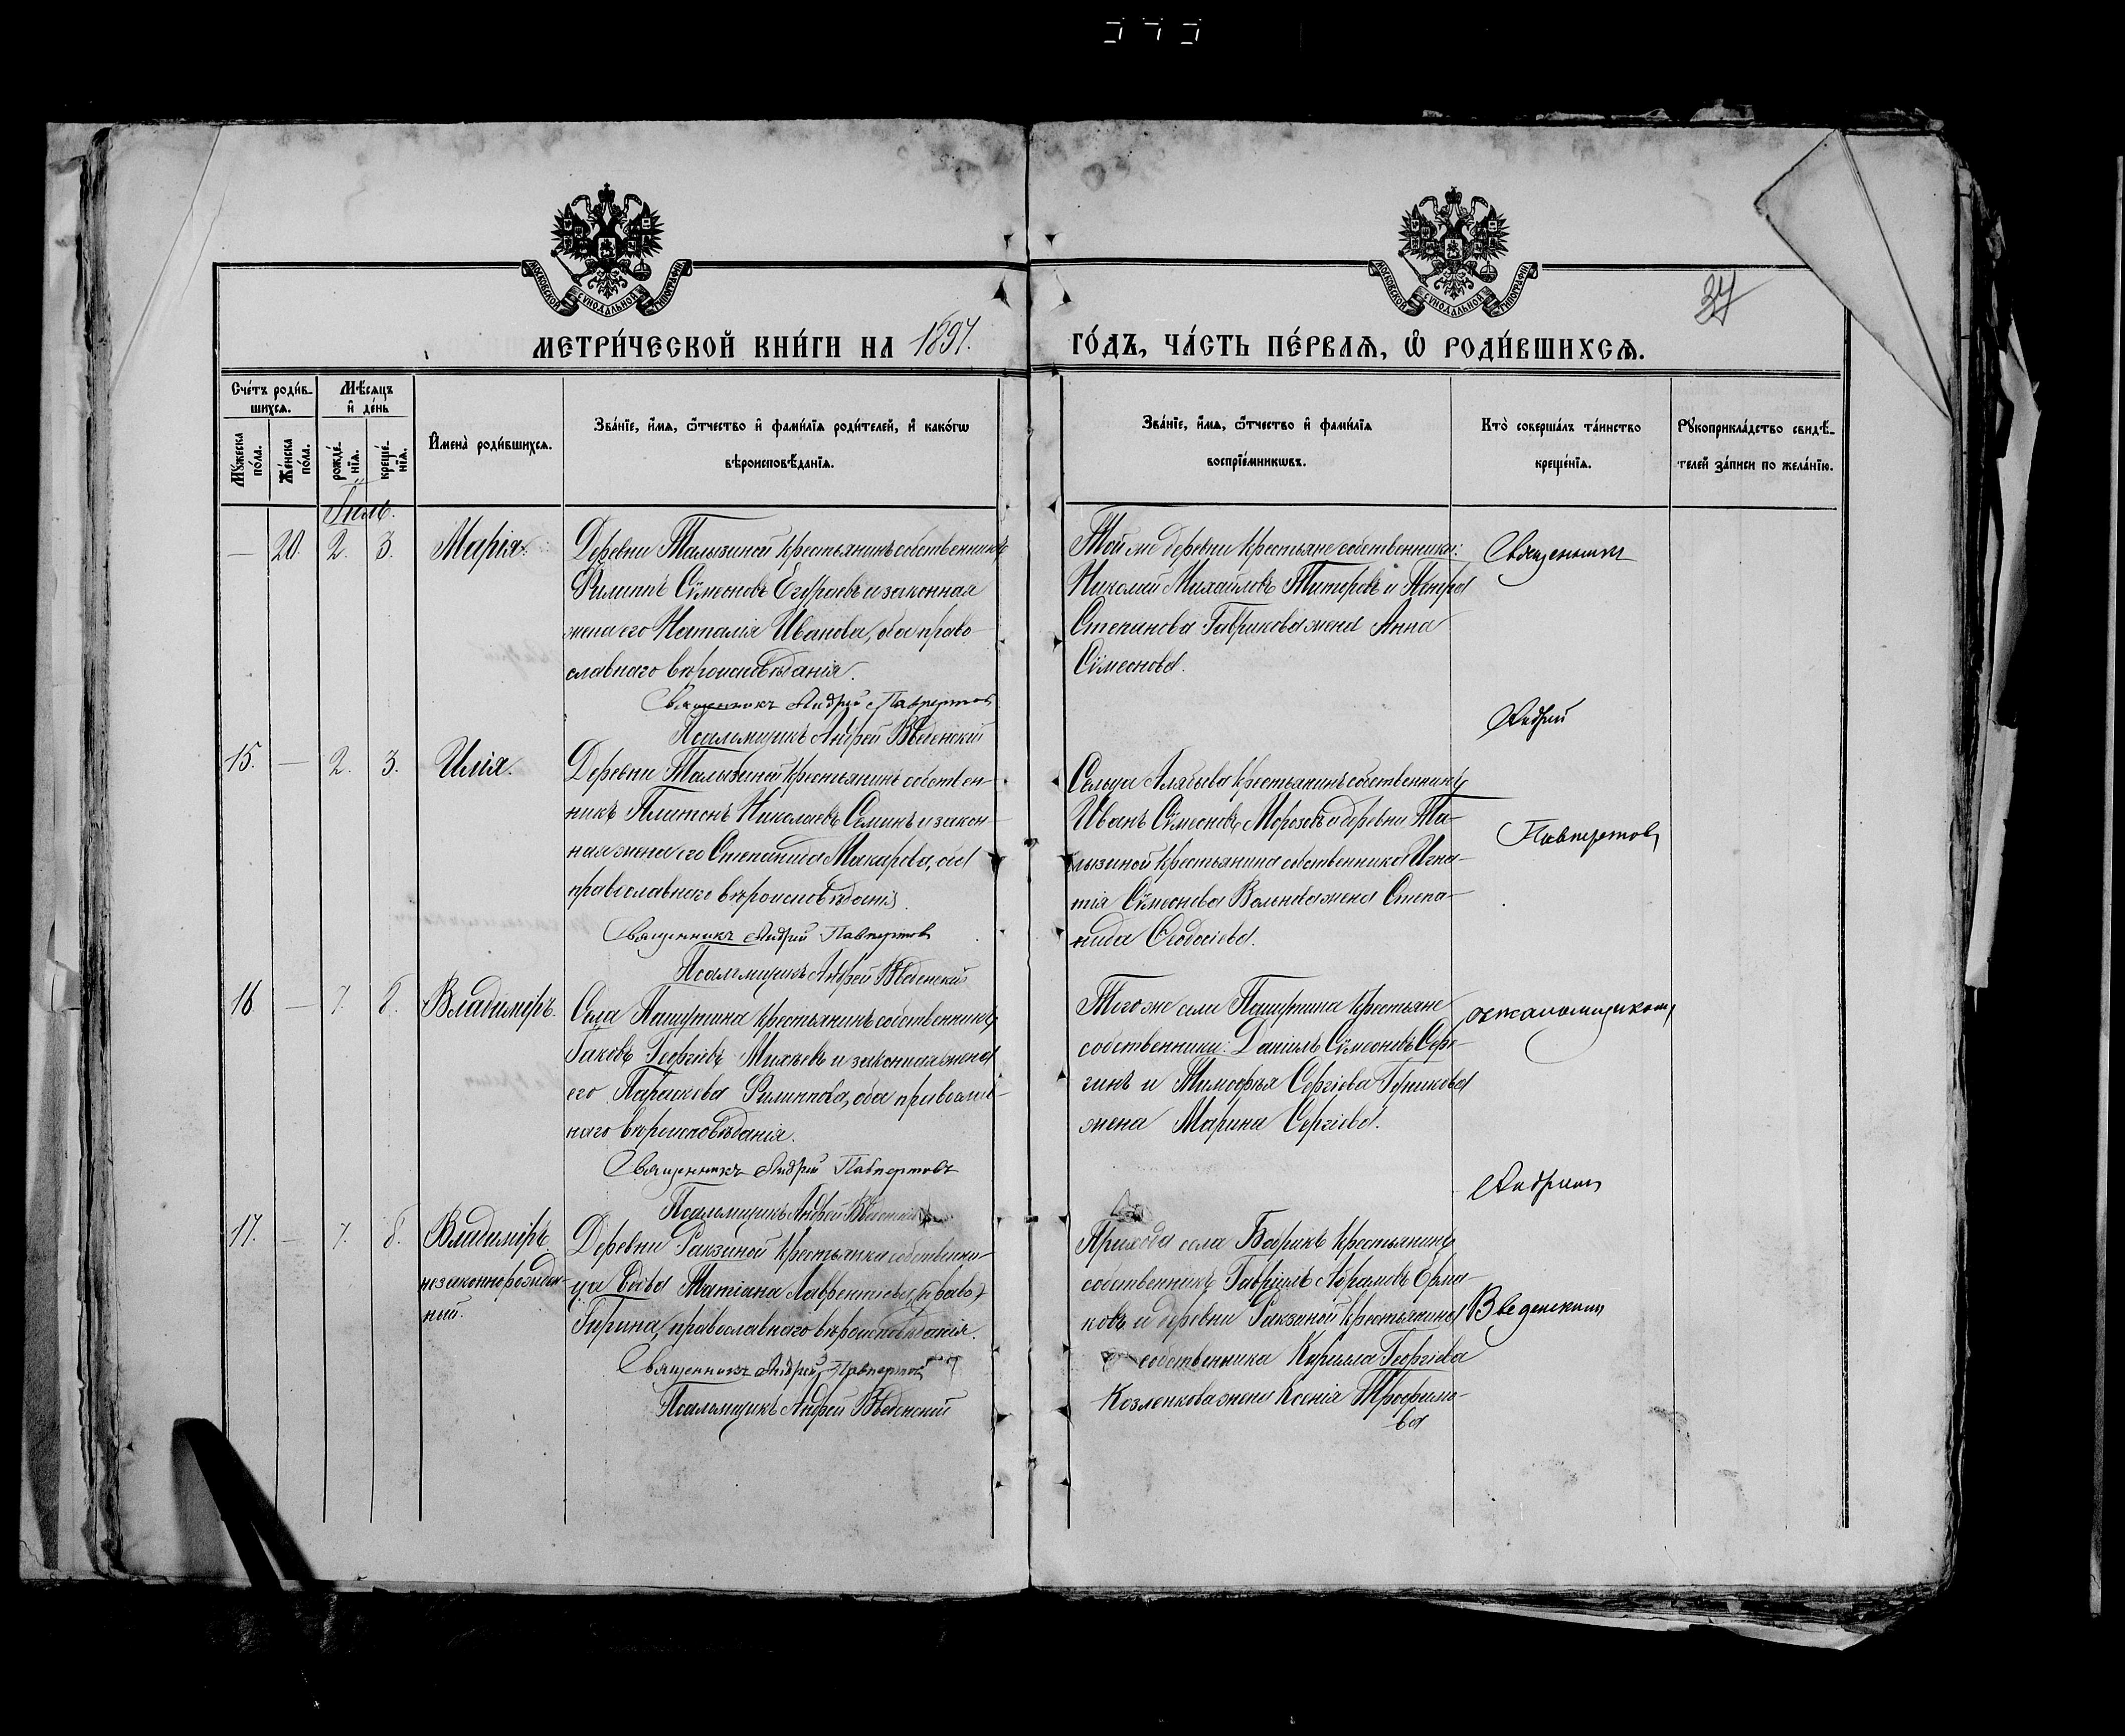 МОСКОВСКОЙ СУНОДАЛЬНОЙ ТИПОГРАФІИ
МОСКОВСКОЙ СУНОДАЛЬНОЙ ТИПОГРАФІИ
37
МЕТРИ́ЧЕСКОЙ КНИ́ГИ НА 1897.
ГО́ДЪ, ЧА́СТЬ ПЕ́РВАѦ, Ѽ РОДИ́ВШИХСѦ.
Сче́тъ роди́в-
шихсѧ.
Мѣ́сѧцъ
и҆ де́нь
Мꙋжеска
по́ла.
Же́нска
по́ла.
рожде́-
нїѧ.
креще́-
нїѧ.
И҆мена̀ роди́вшихсѧ.
Зва́нїе, и҆́мѧ, ѻ҆́тчество и҆ фами́лїѧ роди́телей, и҆ како́гѡ
вѣроисповѣ́данїѧ.
Зва́нїе, и҆́мѧ, ѻ҆́тчество и҆ фами́лїѧ
воспрїе́мникѡвъ.
Кто̀ соверша́лъ та́инство
креще́нїѧ.
Рꙋкоприкла́дство свидѣ́-
телей за́писи по жела́нїю.
Іюль.
— 20. 2. 3. Марія.
Деревни Талызиной крестьянинъ собственникъ
Филиппъ Сѵмеоновъ и законная
жена его Наталія Иванова, оба право-
славнаго вѣроисповѣданія.
Священникъ Андрей Павпертовъ
Псаломщикъ Андрей Введенскій
Той же деревни крестьяне собственники:
Николай Михайловъ Титоровъ и Петра
Степанова Гаврикова жена Анна
Сѵмеонова.
Священникъ
Андрей
Павпертовъ
15. — 2. 3. Илія.
Деревни Талызиной крестьянинъ собствен-
никъ Платонъ Николаевъ Семинъ и закон-
ная жена его Степанида Макарова, оба
православнаго вѣроисповѣданія.
Священникъ Андрей Павпертовъ
Псаломщикъ Андрей Введенскій
Сельца Алябьева крестьянинъ собственникъ
Иванъ Сѵмеоновъ Морозовъ и деревни Та-
лызиной крестьянина собственника Игна-
тія Сѵмеонова жена Степа-
нида Ѳеодосіева.
16. — 7. 8. Владиміръ.
Села Пашутина крестьянинъ собственникъ
Іаковъ Георгіевъ Михѣевъ и законная жена
его Параскева Филиппова, оба православ-
наго вѣроисповѣданія.
Священникъ Андрей Павпертовъ
Псаломщикъ Андрей Введенскій
Того же села Пашутина крестьяне
собственники: Даніилъ Сѵмеоновъ Серё-
гинъ и Тимофея Сергіева
жена Марина Сергіева.
съ псаломщикомъ
Андреемъ
Введенскимъ
17. — 7. 8. Владиміръ
незаконнорожден-
ный.
Деревни Ракзиной крестьянка собственни-
ца вдова Татіана Лаврентіева,
православнаго вѣроисповѣданія.
Священникъ Андрей Павпертовъ
Псаломщикъ Андрей Введенскій
Прихода села Бобрикъ крестьянинъ
собственникъ Гавріилъ Абрамовъ Ерма-
ковъ и деревни Ракзиной крестьянина
собственника Кирилла Георгіева
Козленкова жена Ксенія Трофимо-
ва